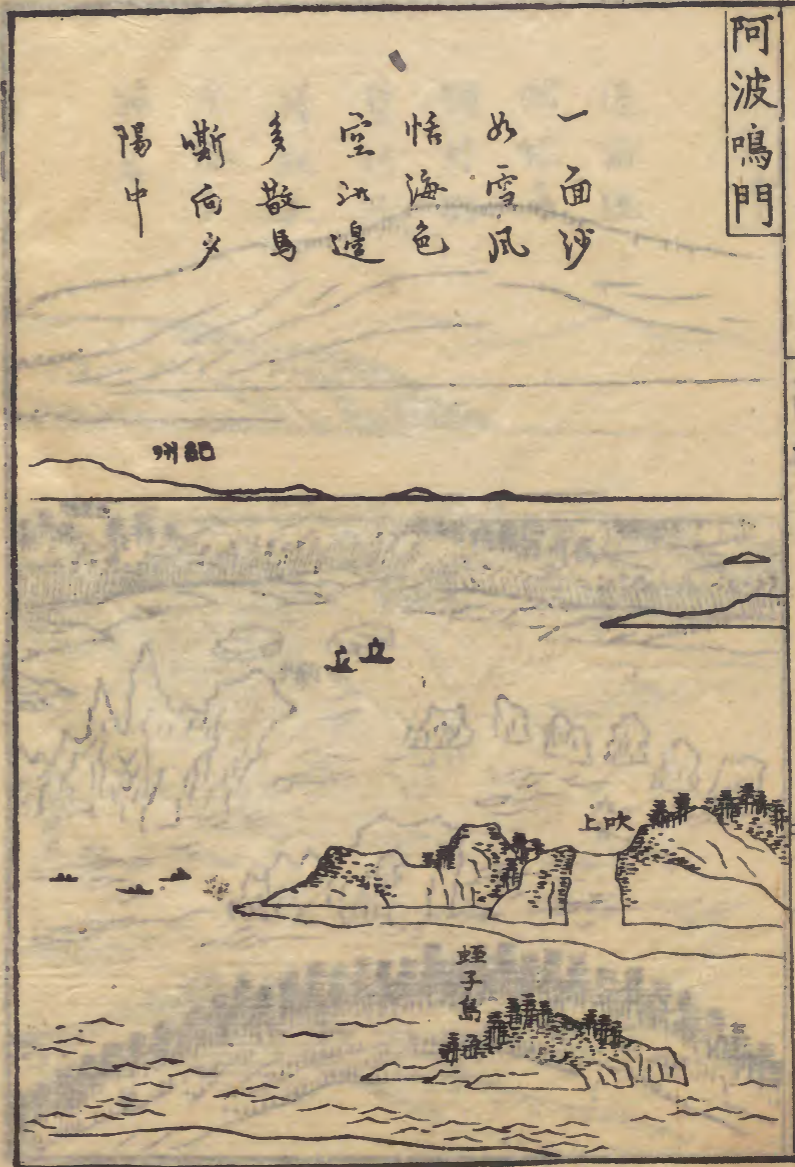 阿波鳴門
一面沙
如雪風
恬海色
空邊
多散馬
嘶向夕
陽中
紀州
吹上
蛭子島